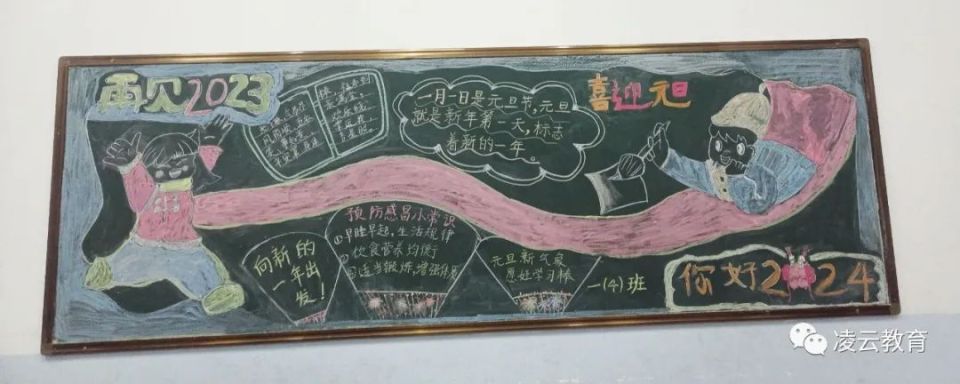 再见2023
喜迎元旦
一月一日是元旦节,元旦
就是新年第一天,标志
着新的一年。
预防感冒小常识
①早睡早起,生活规律
②饮食营养均衡
③适当锻炼,增强体质
向新的
一年出
发!
元旦新气象
愿娃学习棒
一(4)班
你好2024
凌云教育